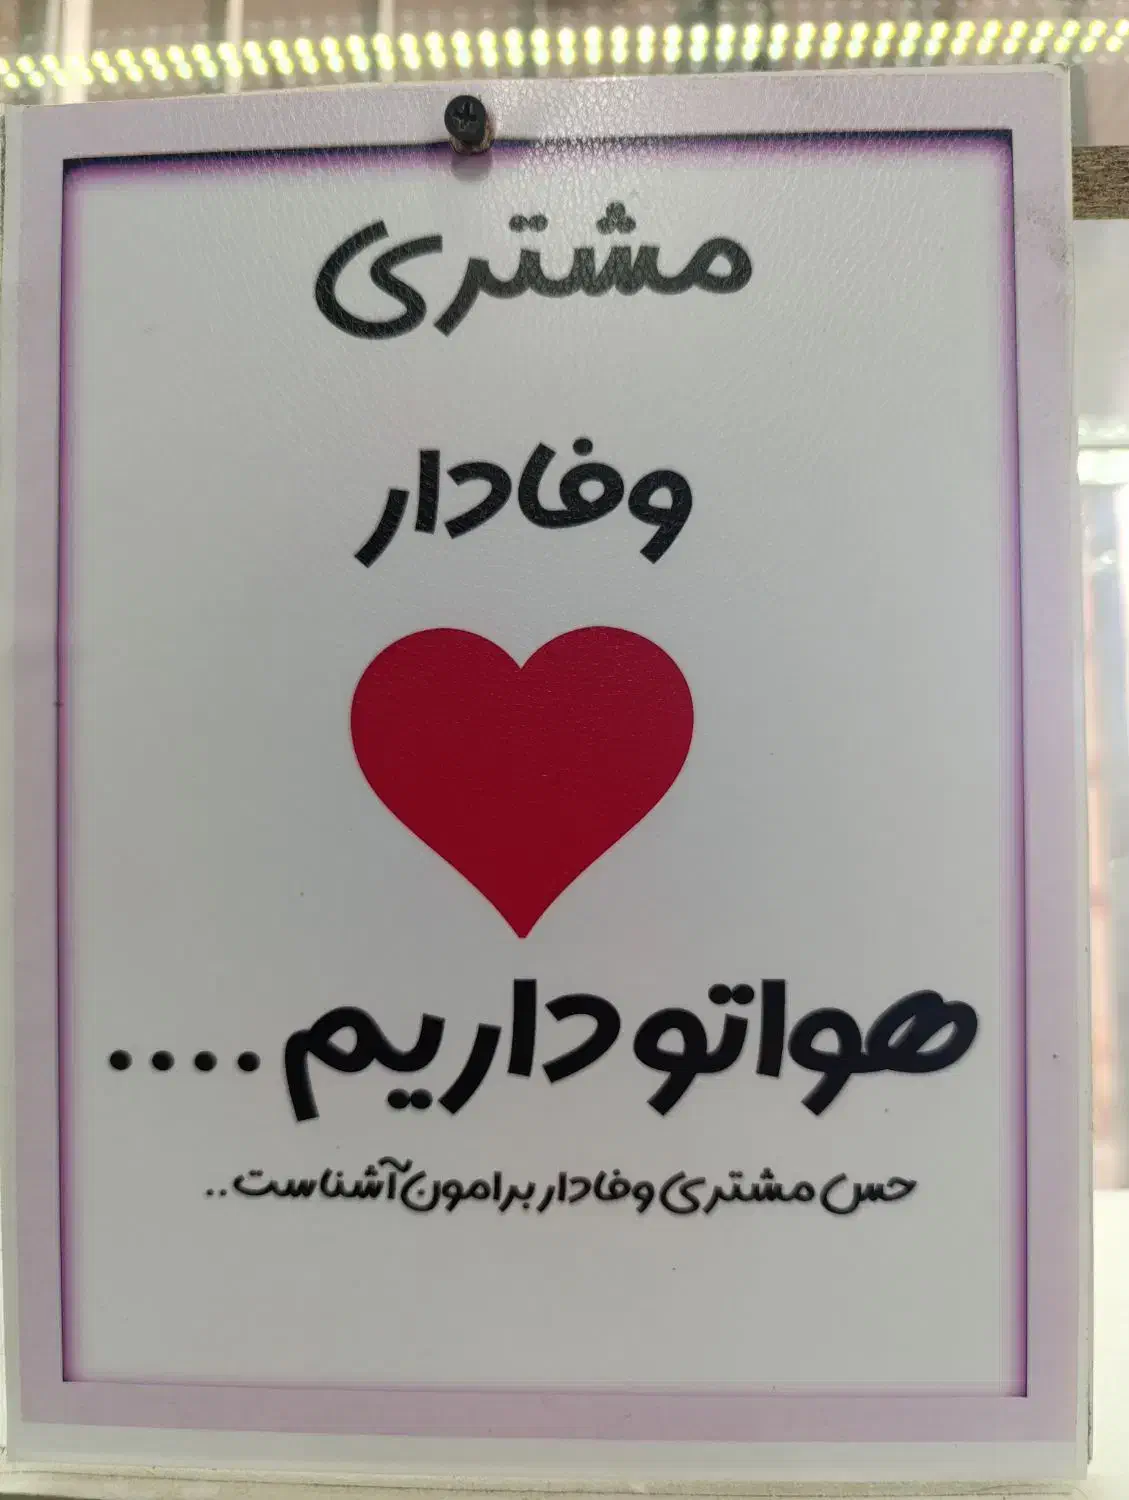 مشتری
وفادار
هواتو داریم ....
حس مشتری وفادار برامون آشناست..